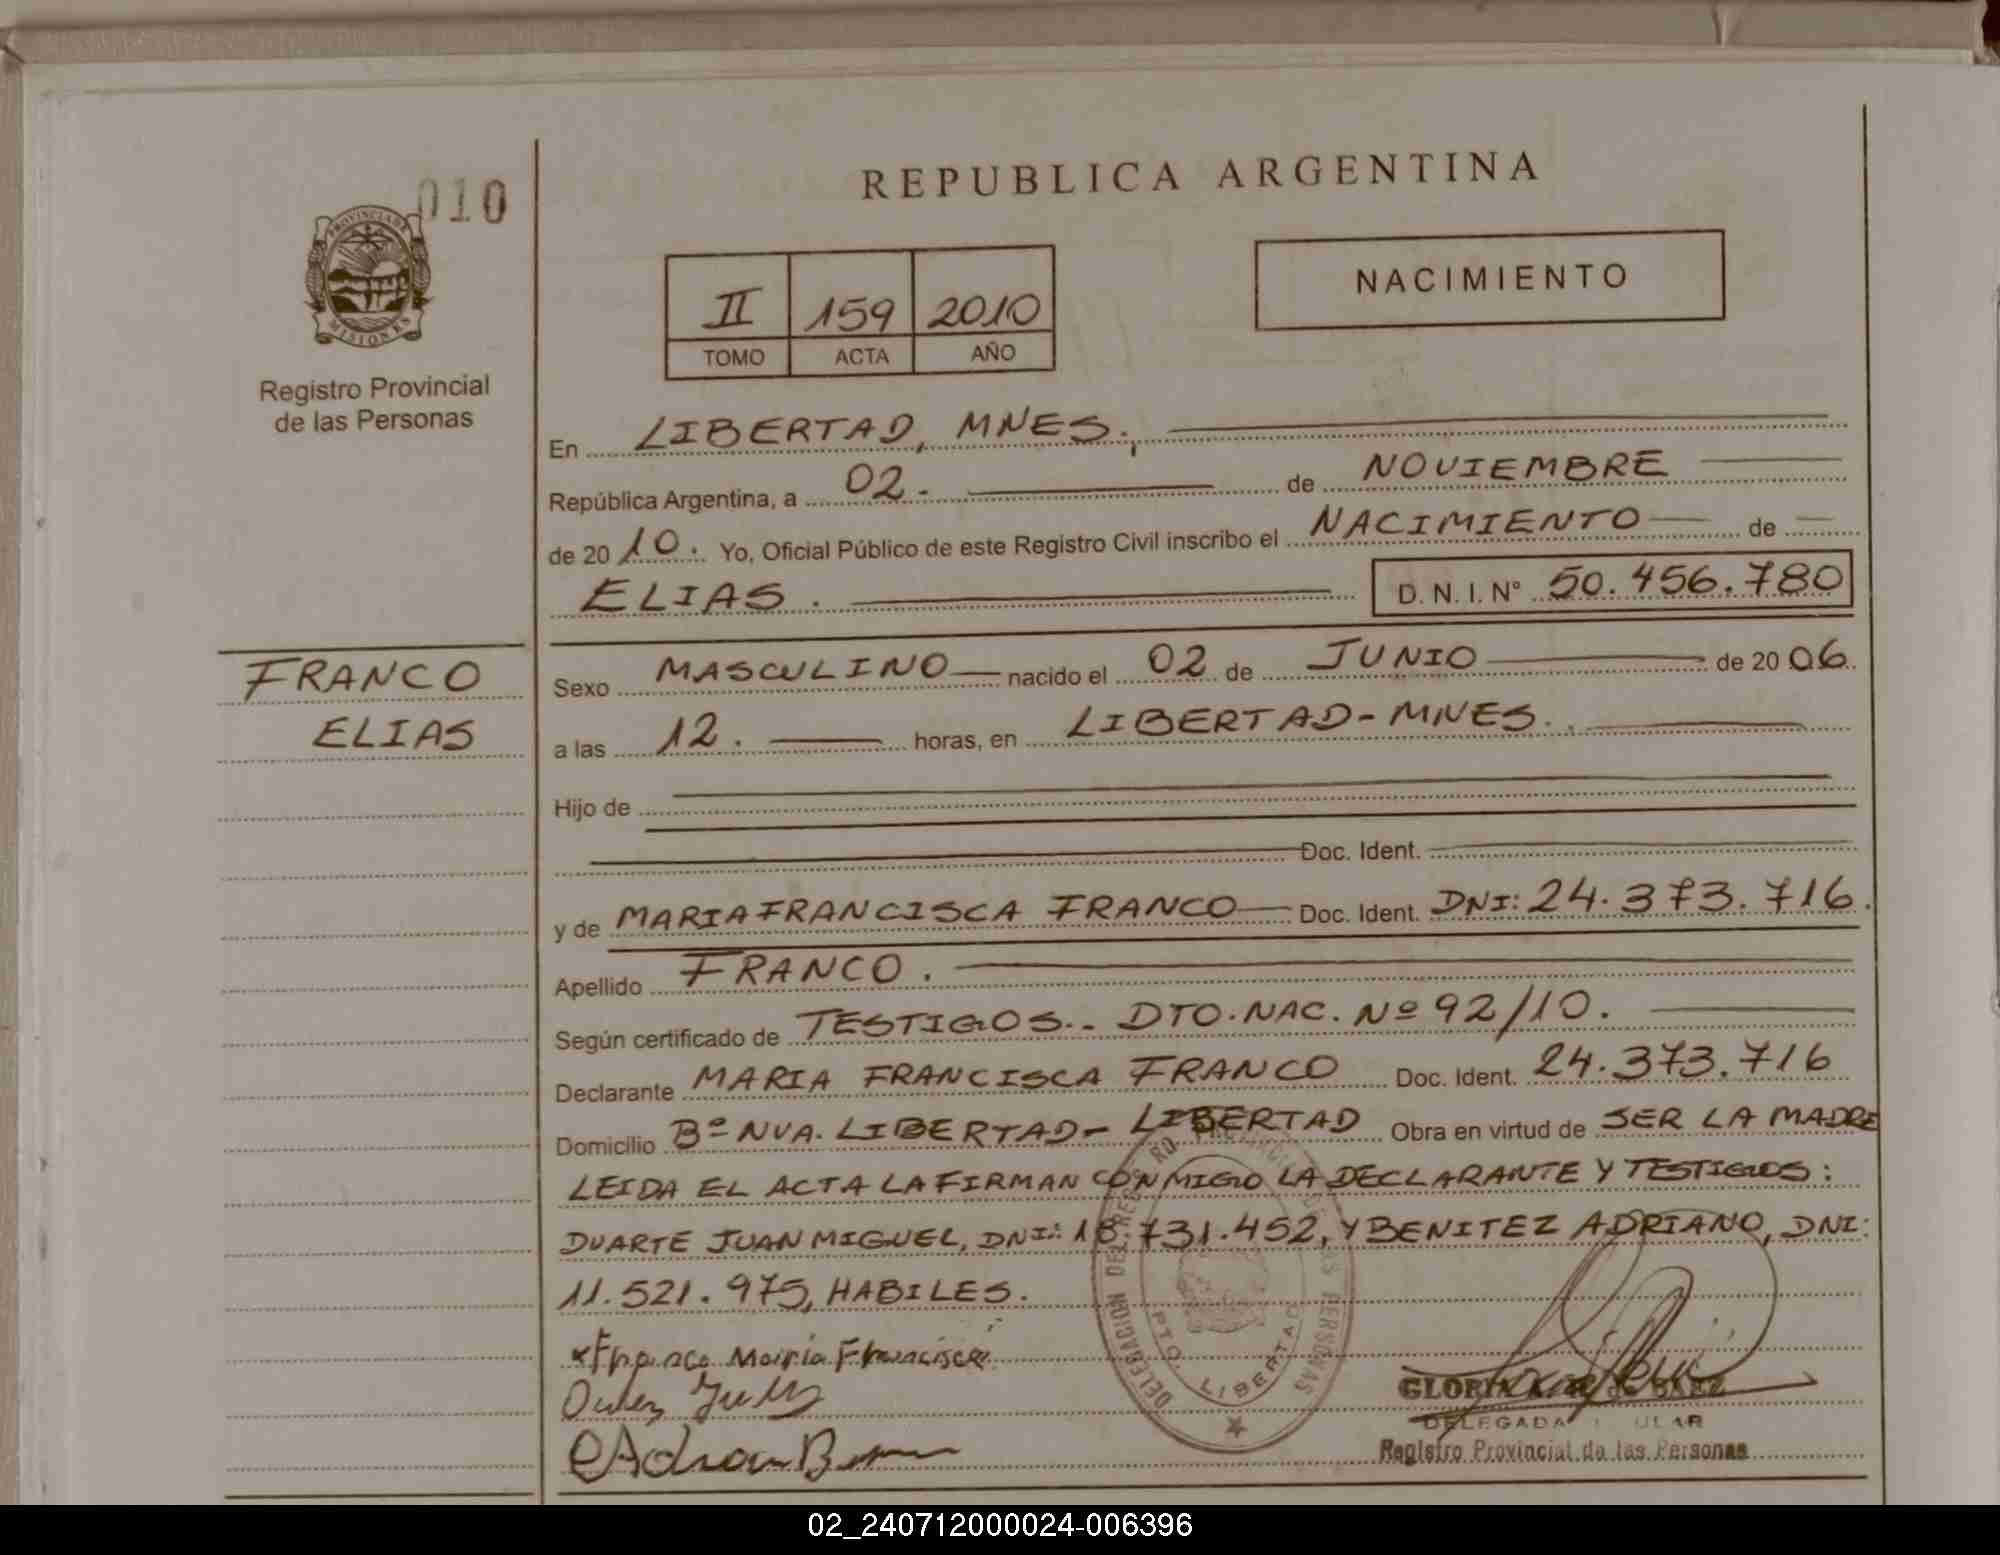 010
PROVINCIA DE
MISIONES
Registro Provincial
de las Personas
FRANCO
ELIAS
REPUBLICA ARGENTINA
II 159 2010
TOMO ACTA AÑO
NACIMIENTO
En LIBERTAD, MNES.,
República Argentina, a 02. de NOVIEMBRE
de 2010. Yo, Oficial Público de este Registro Civil inscribo el NACIMIENTO de
ELIAS. D. N. I. Nº 50.456.780
Sexo MASCULINO nacido el 02 de JUNIO de 2006.
a las 12. horas, en LIBERTAD-MNES.
Hijo de
Doc. Ident.
y de MARIA FRANCISCA FRANCO Doc. Ident. DNI: 24.373.716.
Apellido FRANCO.
Según certificado de TESTIGOS.. DTO. NAC. Nº 92/10.
Declarante MARIA FRANCISCA FRANCO Doc. Ident. 24.373.716
Domicilio Bº NVA. LIBERTAD- LIBERTAD Obra en virtud de SER LA MADRE
LEIDA EL ACTA LA FIRMAN CONMIGO LA DECLARANTE Y TESTIGOS:
DUARTE JUAN MIGUEL, DNI: 18.731.452, Y BENITEZ ADRIANO, DNI:
11.521.975, HABILES.
Franco Maria Francisca
DELEGACION DEL REGISTRO PROVINCIAL DE LAS PERSONAS
PTO LIBERTAD
GLORIA de BAEZ
DELEGADA
Registro Provincial de las Personas
02_240712000024-006396